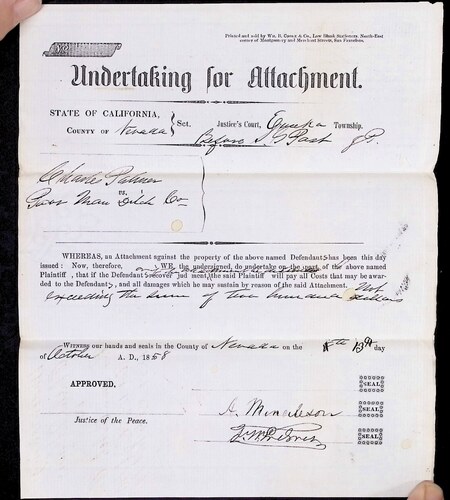 Printed and sold by Wm. B. Cooke & Co., Law Blank Stationers, North-East
corner of Montgomery and Merchant Streets, San Francisco.
Undertaking for Attachment.
STATE OF CALIFORNIA,
COUNTY OF Nevada } Sct. Justice's Court, Eureka Township.
Before J. P.
Charles Palmer
vs.
Poor Man Ditch Co
WHEREAS, an Attachment against the property of the above named Defendants has been this day
issued: Now, therefore, WE, the undersigned, do undertake on the part of the above named
Plaintiff, that if the Defendant recover judgment, the said Plaintiff will pay all Costs that may be awar-
ded to the Defendant, and all damages which he may sustain by reason of the said Attachment, not
exceeding the sum of two hundred dollars
WITNESS our hands and seals in the County of Nevada on the 13th day
of October A. D., 1858
APPROVED.
SEAL
SEAL
Justice of the Peace.
SEAL